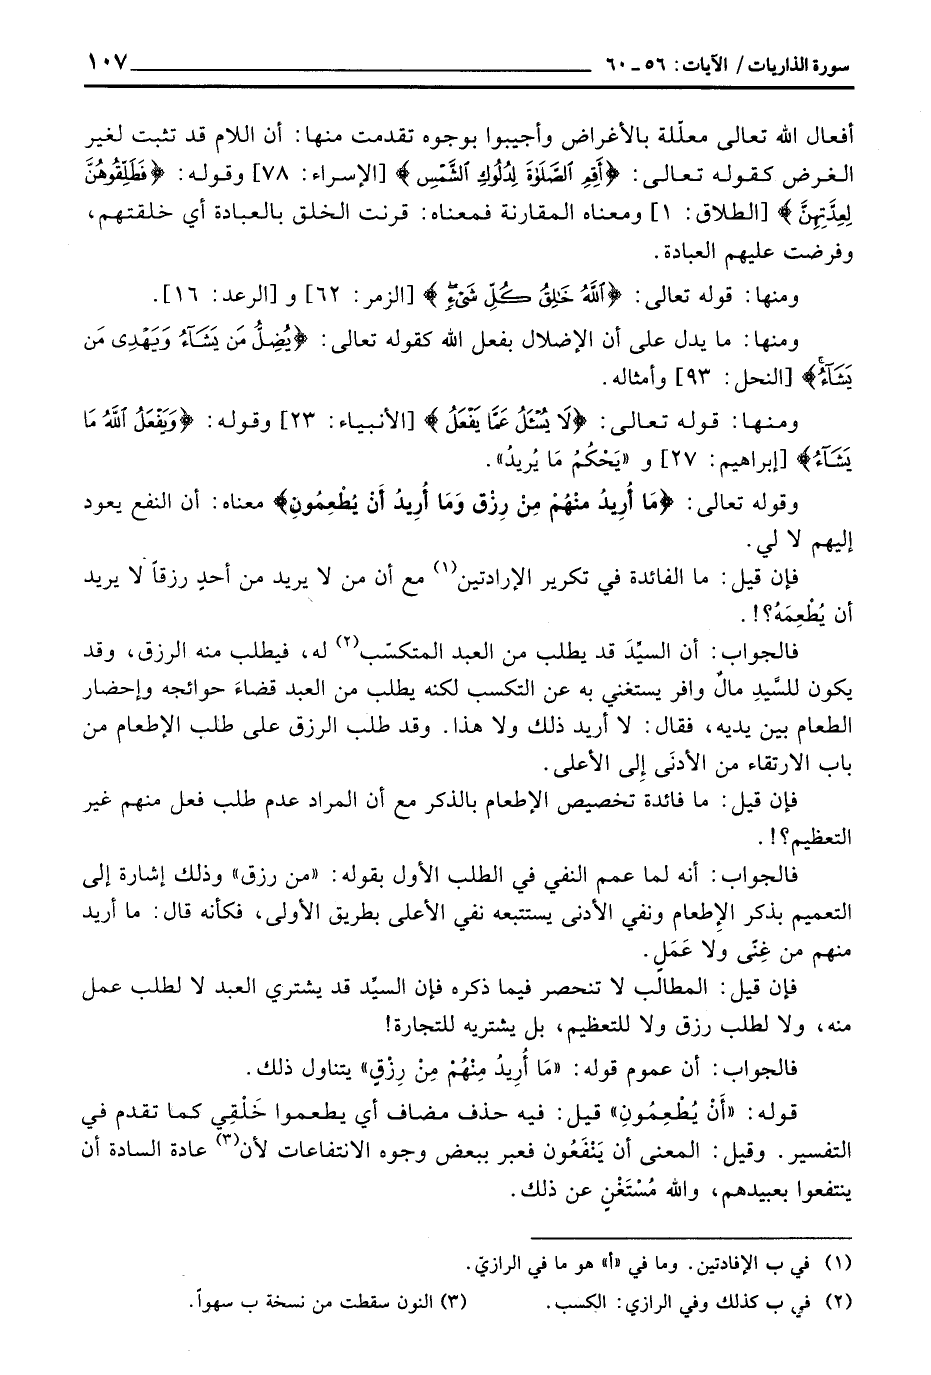 سورة الذاريات / الآيات: ٥٦ ـ ٦٠ ١٠٧
أفعال الله تعالى معلّلة بالأغراض وأجيبوا بوجوه تقدمت منها: أن اللام قد تثبت لغير
الغرض كقوله تعالى: ﴿أَقِمِ ٱلصَّلَوٰةَ لِدُلُوكِ ٱلشَّمْسِ﴾ [الإسراء: ٧٨] وقوله: ﴿فَطَلِّقُوهُنَّ
لِعِدَّتِهِنَّ﴾ [الطلاق: ١] ومعناه المقارنة فمعناه: قرنت الخلق بالعبادة أي خلقتهم،
وفرضت عليهم العبادة.
ومنها: قوله تعالى: ﴿ٱللَّهُ خَٰلِقُ كُلِّ شَىْءٍ﴾ [الزمر: ٦٢] و [الرعد: ١٦].
ومنها: ما يدل على أن الإضلال بفعل الله كقوله تعالى: ﴿يُضِلُّ مَن يَشَآءُ وَيَهْدِى مَن
يَشَآءُ﴾ [النحل: ٩٣] وأمثاله.
ومنها: قوله تعالى: ﴿لَا يُسْـَٔلُ عَمَّا يَفْعَلُ﴾ [الأنبياء: ٢٣] وقوله: ﴿وَيَفْعَلُ ٱللَّهُ مَا
يَشَآءُ﴾ [إبراهيم: ٢٧] و «يَحْكُمُ مَا يُرِيدُ».
وقوله تعالى: ﴿مَا أُرِيدُ مِنْهُمْ مِنْ رِزْقٍ وَمَا أُرِيدُ أَنْ يُطْعِمُونِ﴾ معناه: أن النفع يعود
إليهم لا لي.
فإن قيل: ما الفائدة في تكرير الإرادتين(١) مع أن من لا يريد من أحدٍ رزقاً لا يريد
أن يُطْعِمَهُ؟!.
فالجواب: أن السيِّدَ قد يطلب من العبد المتكسّب(٢) له، فيطلب منه الرزق، وقد
يكون للسَّيدِ مالٌ وافر يستغني به عن التكسب لكنه يطلب من العبد قضاءَ حوائجه وإحضار
الطعام بين يديه، فقال: لا أريد ذلك ولا هذا. وقد طلب الرزق على طلب الإطعام من
باب الارتقاء من الأدنَى إلى الأعلى.
فإن قيل: ما فائدة تخصيص الإطعام بالذكر مع أن المراد عدم طلب فعل منهم غير
التعظيم؟!.
فالجواب: أنه لما عمم النفي في الطلب الأول بقوله: «من رزق» وذلك إشارة إلى
التعميم بذكر الإطعام ونفي الأدنى يستتبعه نفي الأعلى بطريق الأولى، فكأنه قال: ما أريد
منهم من غِنًى ولا عَمَلٍ.
فإن قيل: المطالب لا تنحصر فيما ذكره فإن السيِّد قد يشتري العبد لا لطلب عمل
منه، ولا لطلب رزق ولا للتعظيم، بل يشتريه للتجارة!
فالجواب: أن عموم قوله: «مَا أُرِيدُ مِنْهُمْ مِنْ رِزْقٍ» يتناول ذلك.
قوله: «أَنْ يُطْعِمُونِ» قيل: فيه حذف مضاف أي يطعموا خَلْقِي كما تقدم في
التفسير. وقيل: المعنى أن يَنْفَعُون فعبر ببعض وجوه الانتفاعات لأن(٣) عادة السادة أن
ينتفعوا بعبيدهم، والله مُسْتَغْنٍ عن ذلك.
(١) في ب الإفادتين. وما في «أ» هو ما في الرازيّ.
(٢) في ب كذلك وفي الرازي: الكسب. (٣) النون سقطت من نسخة ب سهواً.